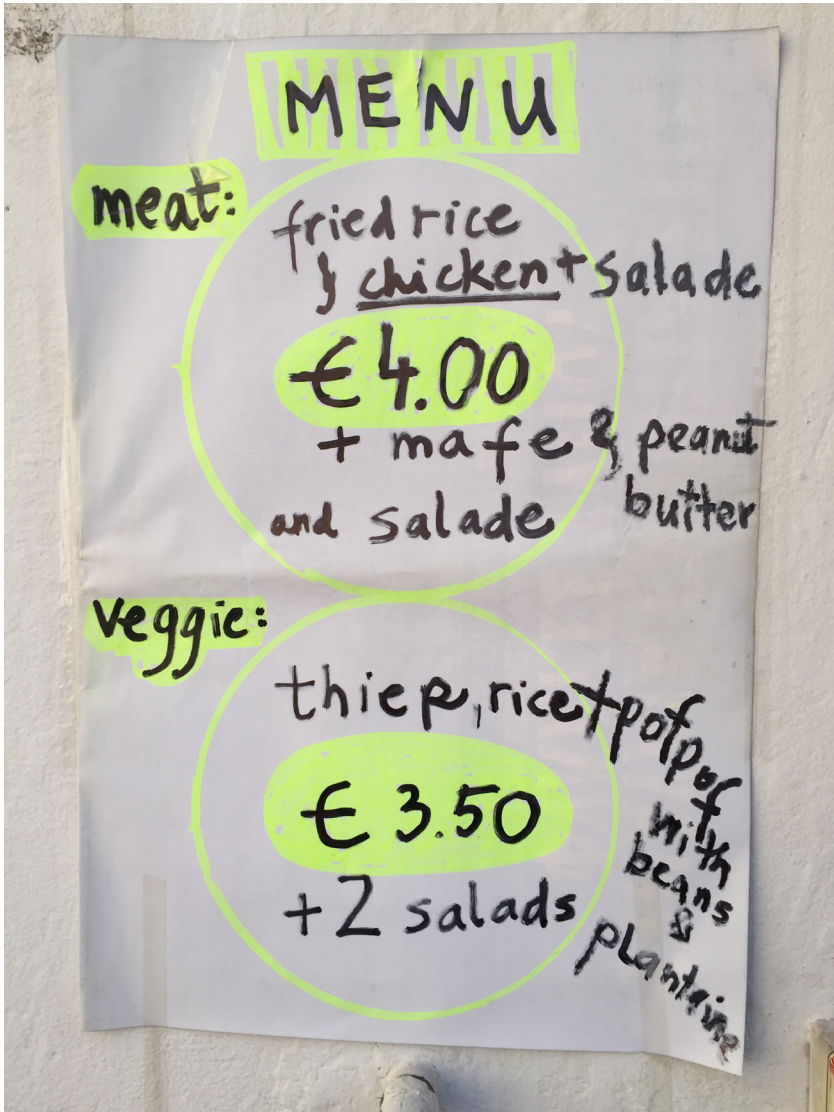 MENU
meat:
fried rice
& chicken + salade
€ 4.00
+ mafe & peanut
butter
and salade
veggie:
thiep, rice + pofpof
with
beans
&
plantaine
€ 3.50
+ 2 salads